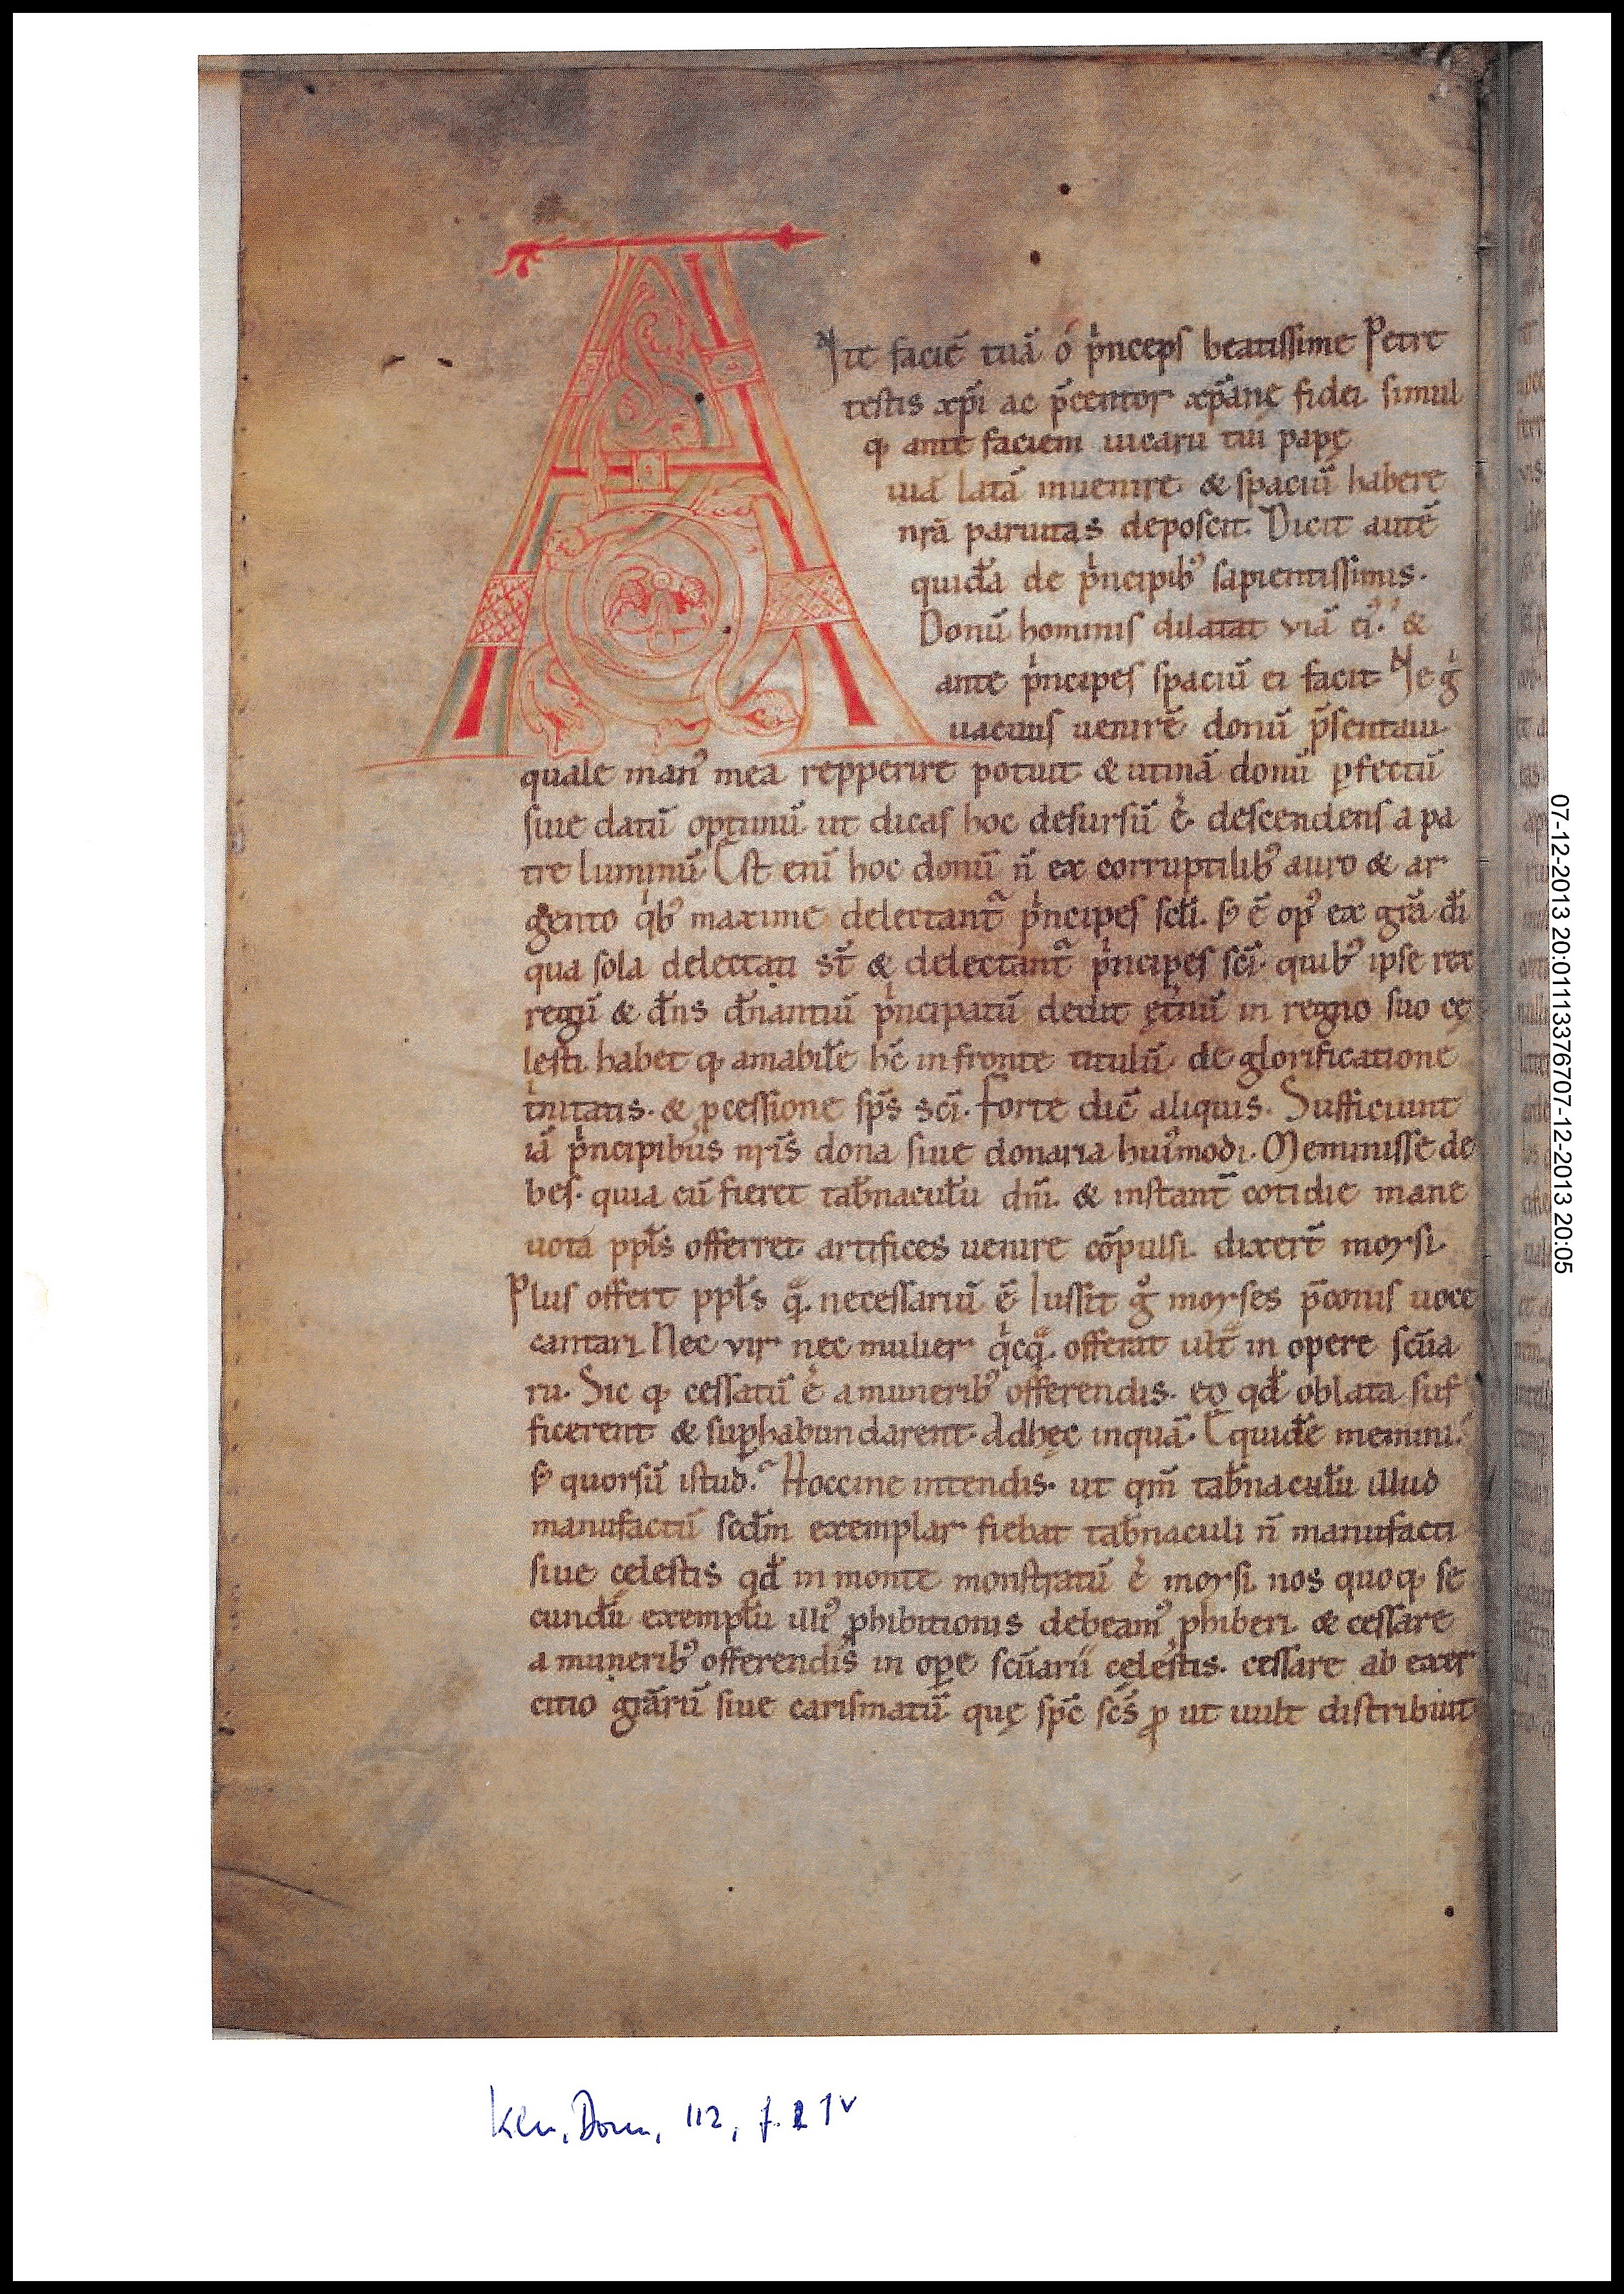 A
Nte faciē tuā ó p̍nceps beatissime Petre
testis xp̄i ac p̄centor xp̄anę fidei simul
q; ante faciem uicarii tui papę
uiā latā inuenire & spaciū habere
nr̄a paruitas deposcit. Dicit autē
quidā de p̍ncipib; sapientissimis.
Donū hominis dilatat viā ei; &
ante p̍ncipes spaciū ei facit Ne g̍
uacuus uenirē donū p̄sentaui
quale man᾽ mea repperire potuit & utinā donū ꝑfectū
siue datū optimū ut dicas hoc desursū ē descendens a pa
tre luminū Est eni hoc donū n̄ ex corruptilib; auro & ar
gento q̍b; maxime delectant᷑ p̍ncipes scl̄i. s; ē op᾽ ex grā di̅
qua sola delectati st̄ & delectant᷑ p̍ncipes sc̄i. quib; ipse rex
regū & dn̄s dn̄antiū p̍ncipatū dedit ęt̄nū in regno suo cę
lesti habet q; amabilē hē in fronte titulū de glorificatione
t̍nitatis. & ꝓcessione sp̄s sc̄i. Forte dic̄ aliquis. Sufficiunt
iā p̍ncipibus nr̄is dona siue donaria hui᾽modi. Meminisse de
bes. quia cū fieret tab̄naculū dn̄i. & instant̄ cotidie mane
uota ppl̄s offerret artifices uenire cōpulsi dixer̄t moysi
Plus offert ppl̄s q̄. necessariū ē Iussit g̍ moyses p̄conis uoce
cantari Nec vir nec mulier q̍cq̄. offerat ult̄ in opere sc̄ua
rii. Sic q; cessatū ē a munerib; offerendis. eo qd̄ oblata suf
ficerent & suꝑhabundarent. Adhęc inquā. Equidē memini.
s; quorsū istud. Hoccine intendis. ut qm̄ tab̄naculū illud
manufactū scdm̄ exemplar fiebat tab̄naculi n̄ manufacti
siue celestis qd̄ in monte monstratū ē moysi nos quoq; se
cundū exemplū illi᾽ ꝓhibitionis debeam᾽ ꝓhiberi & cessare
a munerib; offerendis in oꝑe sc̄uarii cęlestis. cessare ab exer
citio grārū siue carismatū quę sp̄c sc̄s ꝓ ut uult distribuit
07-12-2013 20:0111337670​7-12-2013 20:05
Kln, Dom, 112, f. 1v